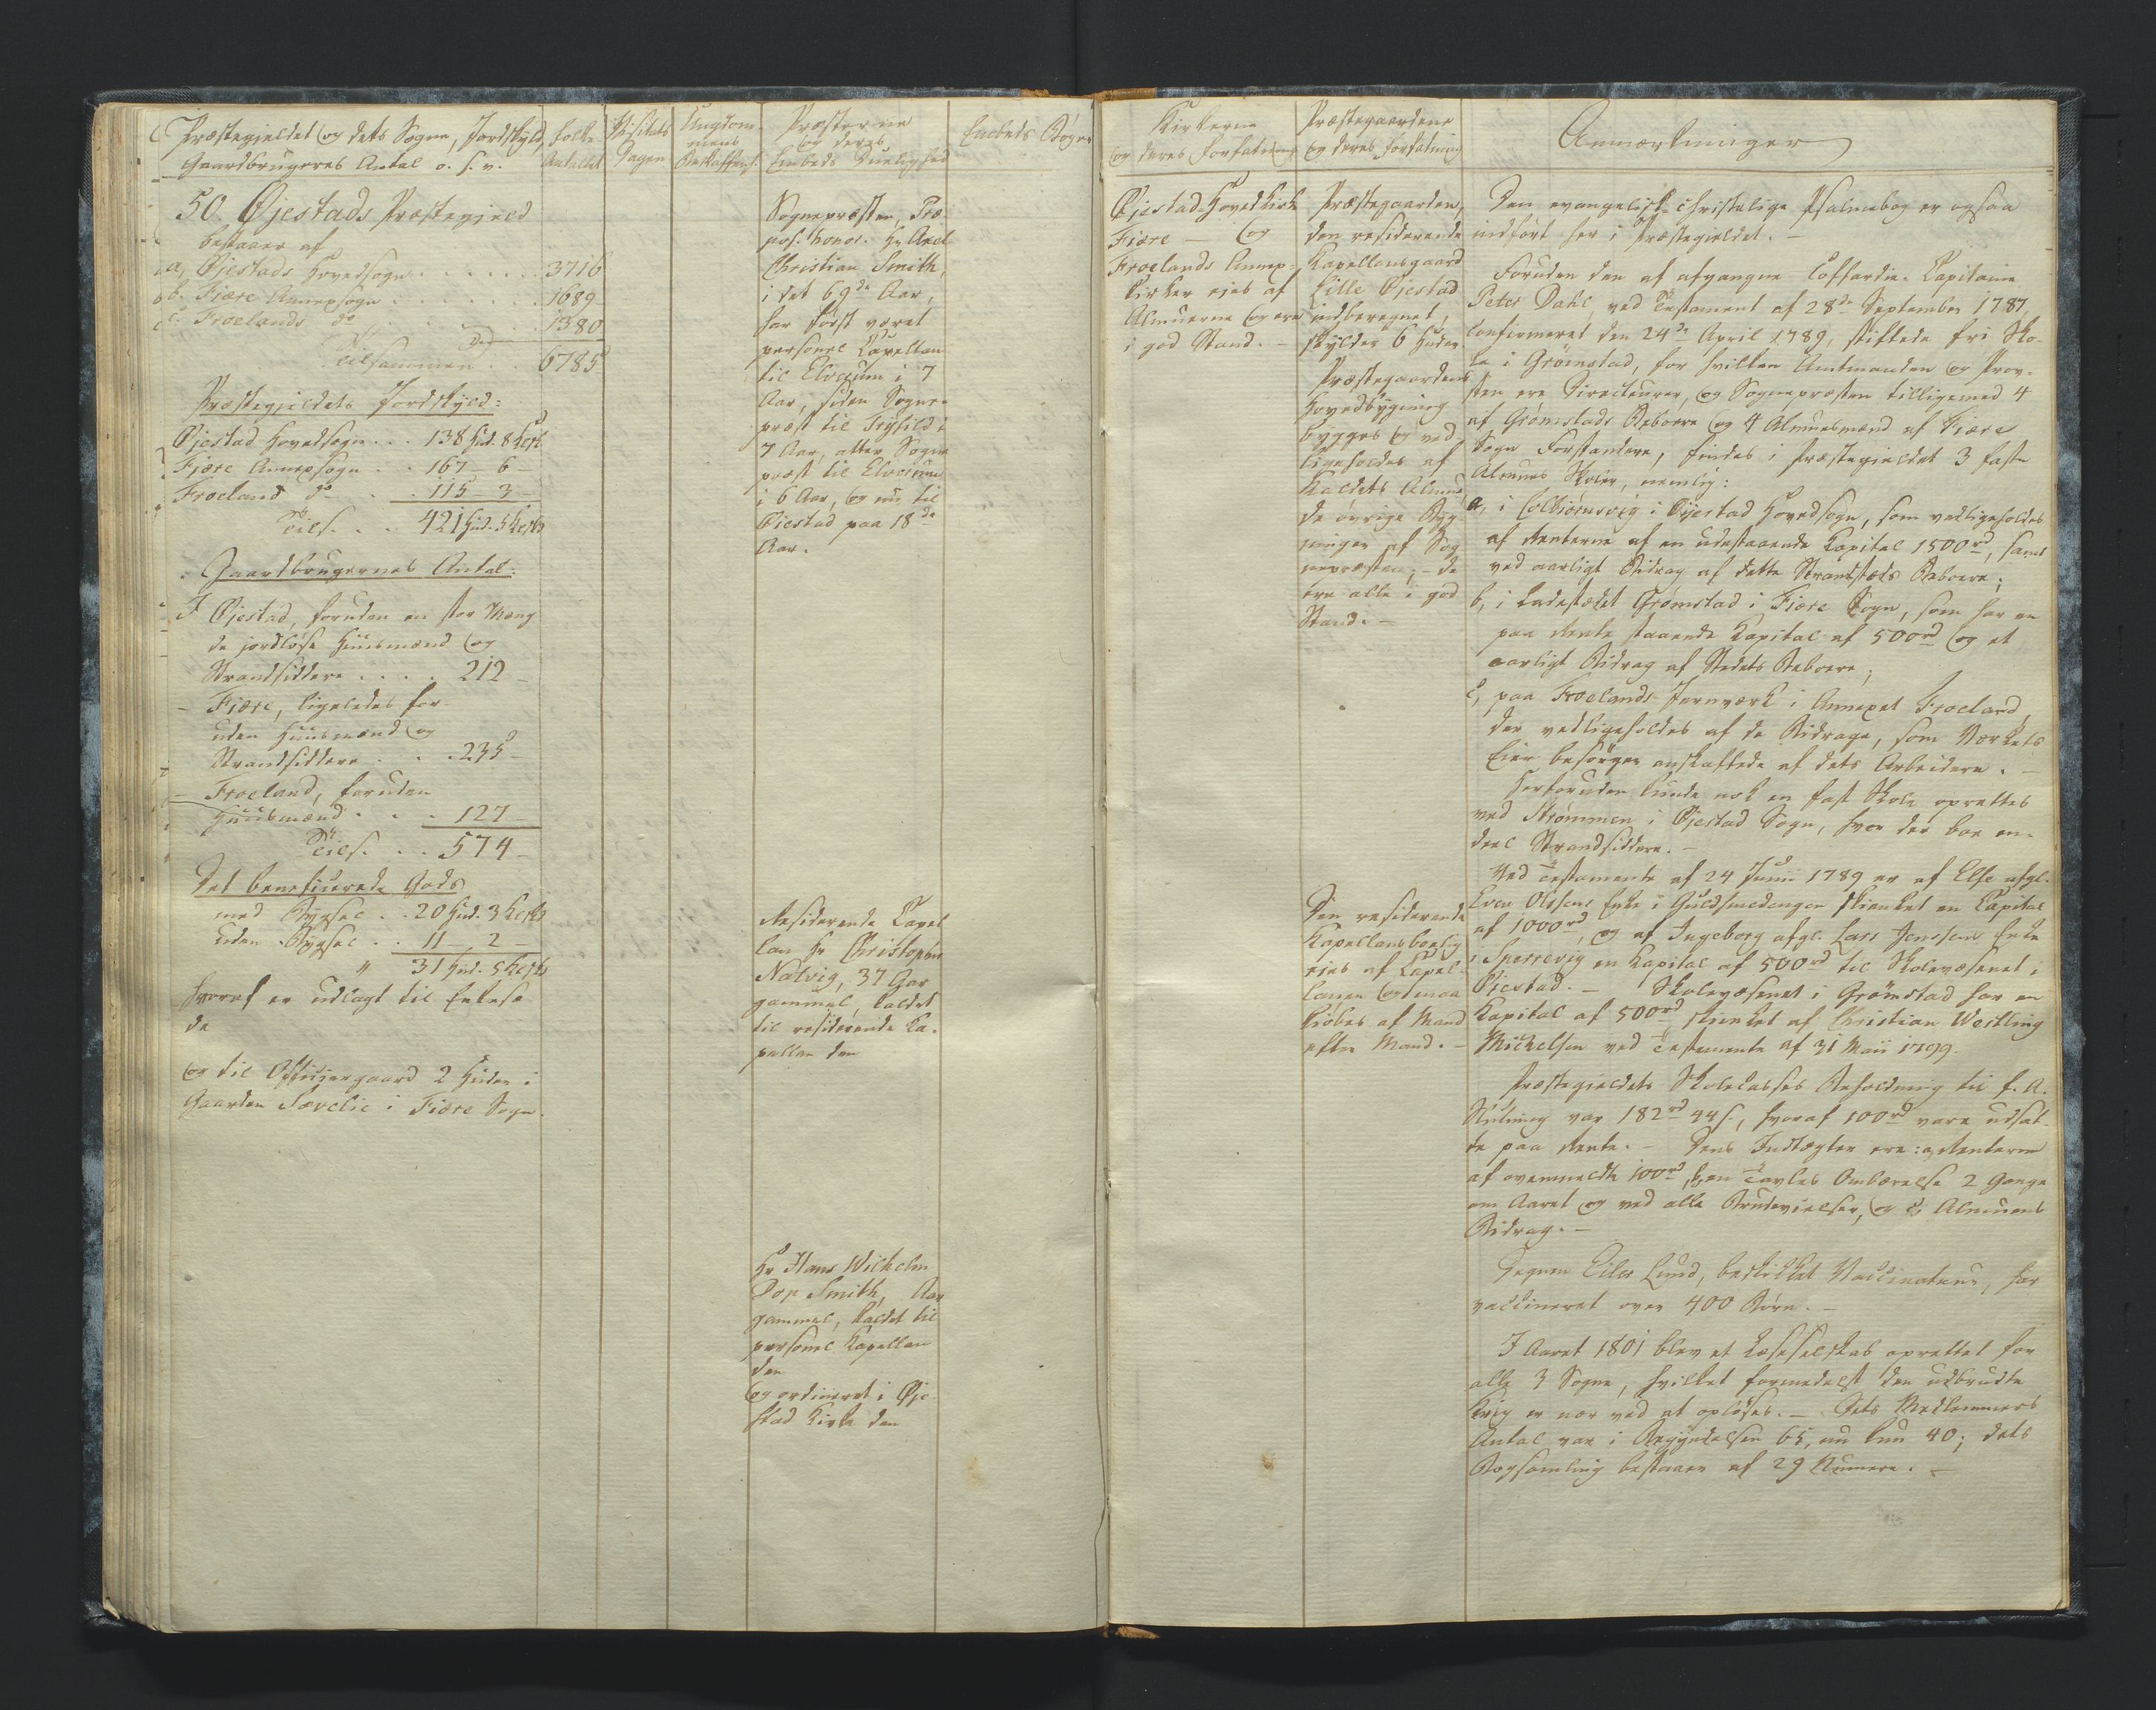 Præstegjeldet og dets Sogne, Jordskyld,
Gaardbrugeres Antal o. s. v.
Folke
Antallet
Visitats
Dagen
Ungdom-
mens
Beskaffenh.
Præsterne
og deres
Embeds Duelighed
Embeds Bøger
50. Øjestads Præstegjeld
bestaaer af
a, Øjestads Hovedsogn . . . . . 3716
b. Fjære Annexsogn . . . . . . 1689
c. Froelands do . . . . . . 1380
Tilsammen . . 6785
Præstegjeldets Jordskyld:
Øjestad Hovedsogn . . . 138 Hud. 8 Kesk.
Fjære Annexsogn . . 167 – 6 –
Froeland do . . 115 – 3 –
Tils. . . 421 Hud. 5 Kesk.
Gaardbrugernes Antal:
I Øjestad, foruden en stor Mæng
de jordløse Huusmænd og
Strandsiddere . . . . 212 –
– Fjære, ligeledes for-
uden Huusmænd og
Strandsiddere . . . 235 –
– Froeland, foruden
Huusmænd . . . 127 –
Tils. . . 574 –
Det beneficerede Gods
med Bygsel . . 20 Hud. 3 Kesk.
uden Bygsel . . 11 – 2 –
" 31 Hud. 5 Kesk.
hvoraf er udlagt til Enkese
de
og til Gaard 2 Huder i
Gaarden Sævelie i Fjære Sogn.
Sognepræsten, Pro
pos. honor. Hr Axel
Christian Smith,
i det 69de Aar,
har først været
personel Capellan
til Elverum i 7
Aar, siden Sogne-
præst til Trysild i
7 Aar, atter Sogne
præst til Elverum
i 6 Aar, og nu til
Øiestad paa 18de
Aar.
Residerende Capel
lan Hr Christopher
Natvig, 37 Aar
gammel, kaldet
til residerende Ca-
pellan den
Hr Hans Wilhelm
Dop Smith, Aar
gammel, kaldet til
personel Kapellan
den
og ordineret i Øje-
stad Kirke den
Kirkerne
og deres Forfatning
Præstegaardene
og deres Forfatning
Anmærkninger
Øjestad Hovedkirke
Fjære – og
Froelands Annex-
kirker ejes af
Almuerne og ere
i god Stand. –
Præstegaarden,
den residerende
Kapellansgaard
Lille Øjestad
indberegnet,
skylder 6 Huder
Præstegaardens
Hovedbygning
bygges og ved
ligeholdes af
Kaldets Almue
de øvrige Byg-
ninger af Sog
nepræsten; – de
ere alle i god
Stand. –
Den residerende
Kapellansbolig
ejes af Capel-
lanen og maa
kiøbes af Mand
efter Mand. –
Den evangelisk-christelige Psalmebog er ogsaa
indført her i Præstegieldet. –
Foruden den af afgangne Coffardie-Capitaine
Peter Dahl, ved Testament af 28de September 1787,
confirmeret den 24de April 1789, stiftede fri Sko-
le i Grømstad, for hvilken Amtmanden og Prov-
sten ere Directeurer, og Sognepræsten tilligemed 4
af Grømstads Beboere og 4 Almuesmænd af Fjære
Sogn Forstandere, findes i Præstegieldet 3 faste
Almues Skoler, nemlig:
a, i Colbiørnsvig i Øjestad Hovedsogn, som vedligeholdes
af Renterne af en udestaaende Kapital 1500 rd, samt
ved aarligt Bidrag af dette Strandsteds Beboere;
b, i Ladestædet Grømstad i Fjære Sogn, som har en
paa Rente staaende Kapital af 500 rd og et
aarligt Bidrag af Stedets Beboere;
c, paa Froelands Jernværk i Annexet Froeland,
der vedligeholdes af de Bidrage, som Værkets
Eier besørger anskaffede af dets Arbeidere. –
Herforuden kunde nok en fast Skole oprettes
ved Strømmen i Øjestad Sogn, hvor der boe en-
deel Strandsiddere. –
Ved Testamente af 24 Junii 1789 er af Else afgl.
Even Olssens Enke i Guldsmedengen skienket en Capital
af 1000 rd, og af Ingeborg afgl. Lars Jenssens Enke
i Sperrevig en Kapital af 500 rd til Skolevæsenet i
Øjestad. – Skolevæsenet i Grømstad har en
Kapital af 500 rd, skienket af Christian Westling
Michelsen ved Testamente af 31 Maii 1799.
Præstegieldets Skolekasses Beholdning til f. A.
Slutning var 182 rd 44 s., hvoraf 100 rd vare udsat-
te paa Rente. – Dens Indtægter ere: a, Renterne
af ovenmeldte 100 rd, b, en Tavles Ombærelse 2 Gange
om Aaret og ved alle Brudevielser, og c, Almuens
Bidrag. –
Degnen Eiler Lund, beskikket Vaccinateur, har
vaccineret over 400 Børn. –
I Aaret 1801 blev et Læseselskab oprettet for
alle 3 Sogne, hvilket formedelst den udbrudte
Krig er nær ved at opløses. – Dets Medlemmers
Antal var i Begyndelsen 65, nu kun 40; dets
Bogsamling bestaaer af 29 Numere. –